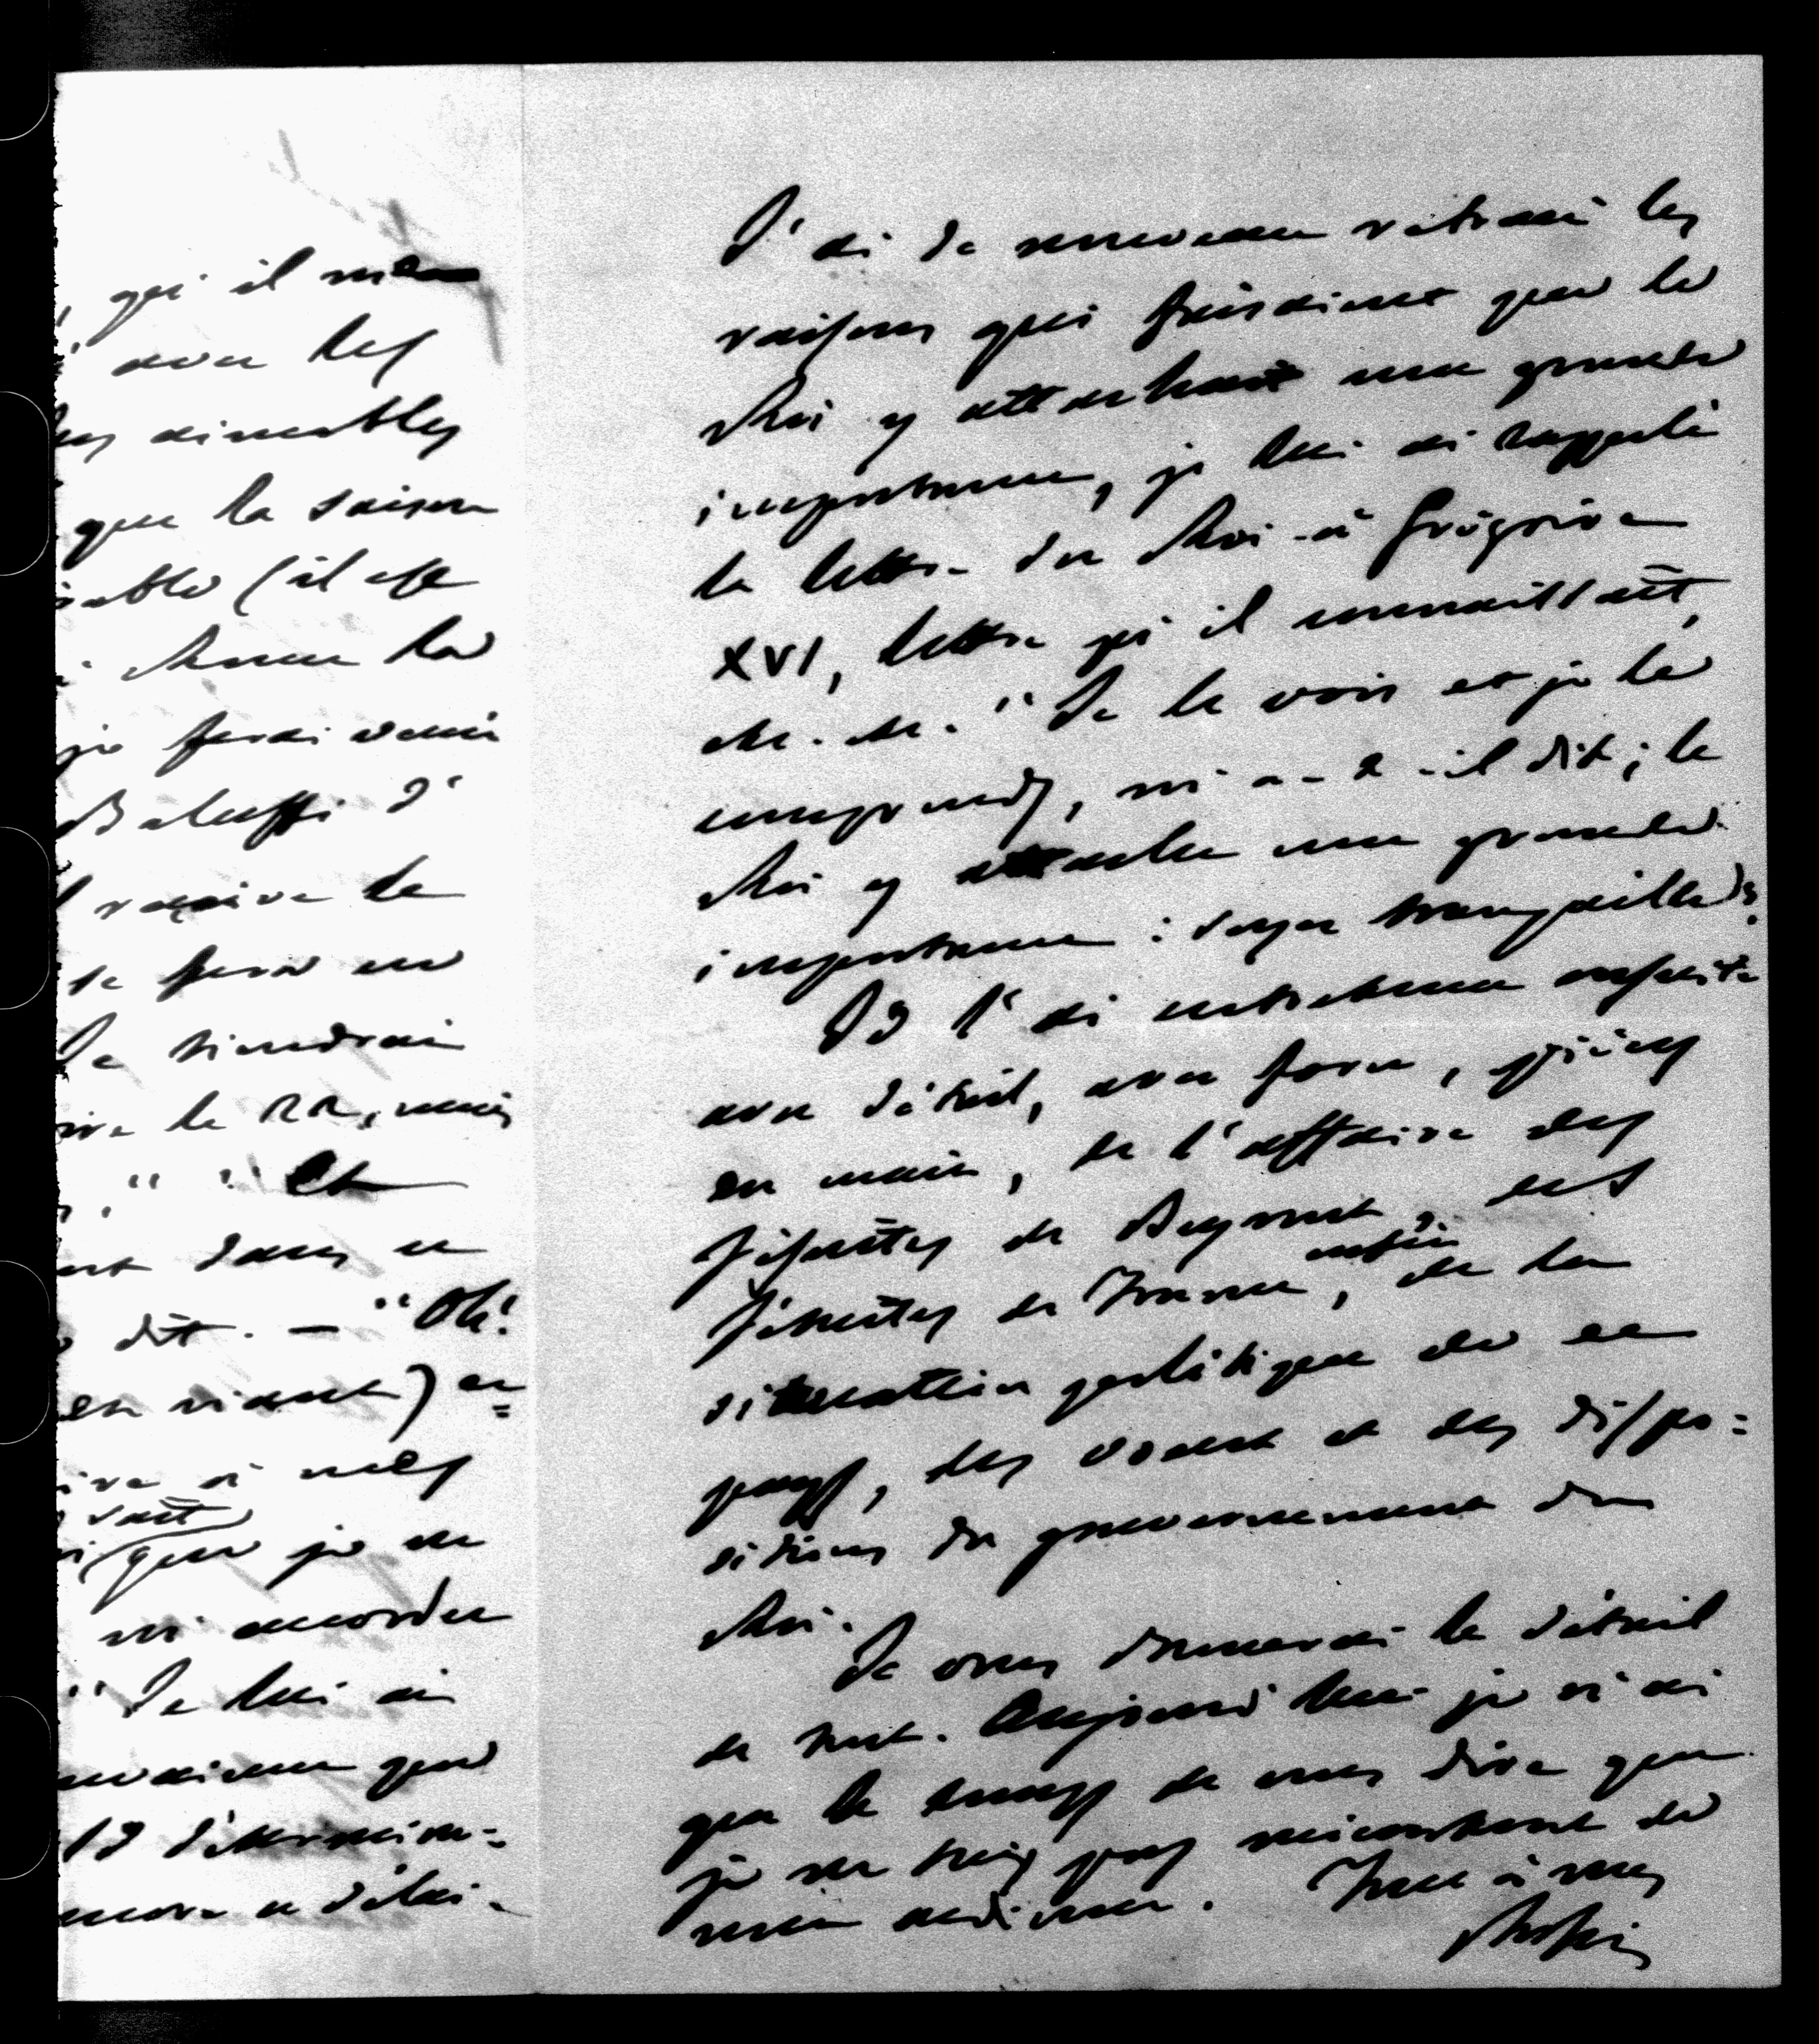 , qu'il m'en
avec les
aimables
que la saison
able (il est
donne la
je ferai venir
Baluffi d'
reçoive le
se fera en
Je tiendrai
le 22, mais
" Et
dans ce
dit. — "Oh!
en riant) ce=
à mes
sait
que je ne
m'accorder
" Je lui ai
que
détermin=
encore a déli-
J'ai de nouveau retracé les
raisons qui faisaient que le
Roi y attachait une grande
importance, je lui ai rappelé
la lettre du Roi à Grégoire
XVI, lettre qu'il connaissait,
etc. etc. "Je le vois et je le
comprends, m'a-t-il dit; le
Roi y attache une grande
importance: soyez tranquille."
Je l'ai entretenu ensuite
avec détail, avec force, pièces
en main, de l'affaire des
Jésuites de Beyrout, des
Jésuites de France, enfin de la
situation politique de ce
pays, des vœux et des dispo=
sitions du gouvernement du
Roi.
Je vous donnerai le détail
de tout. Aujourd'hui je n'ai
que le temps de vous dire que
je ne suis pas mécontent de
mon audience. Tout à vous
Rossi